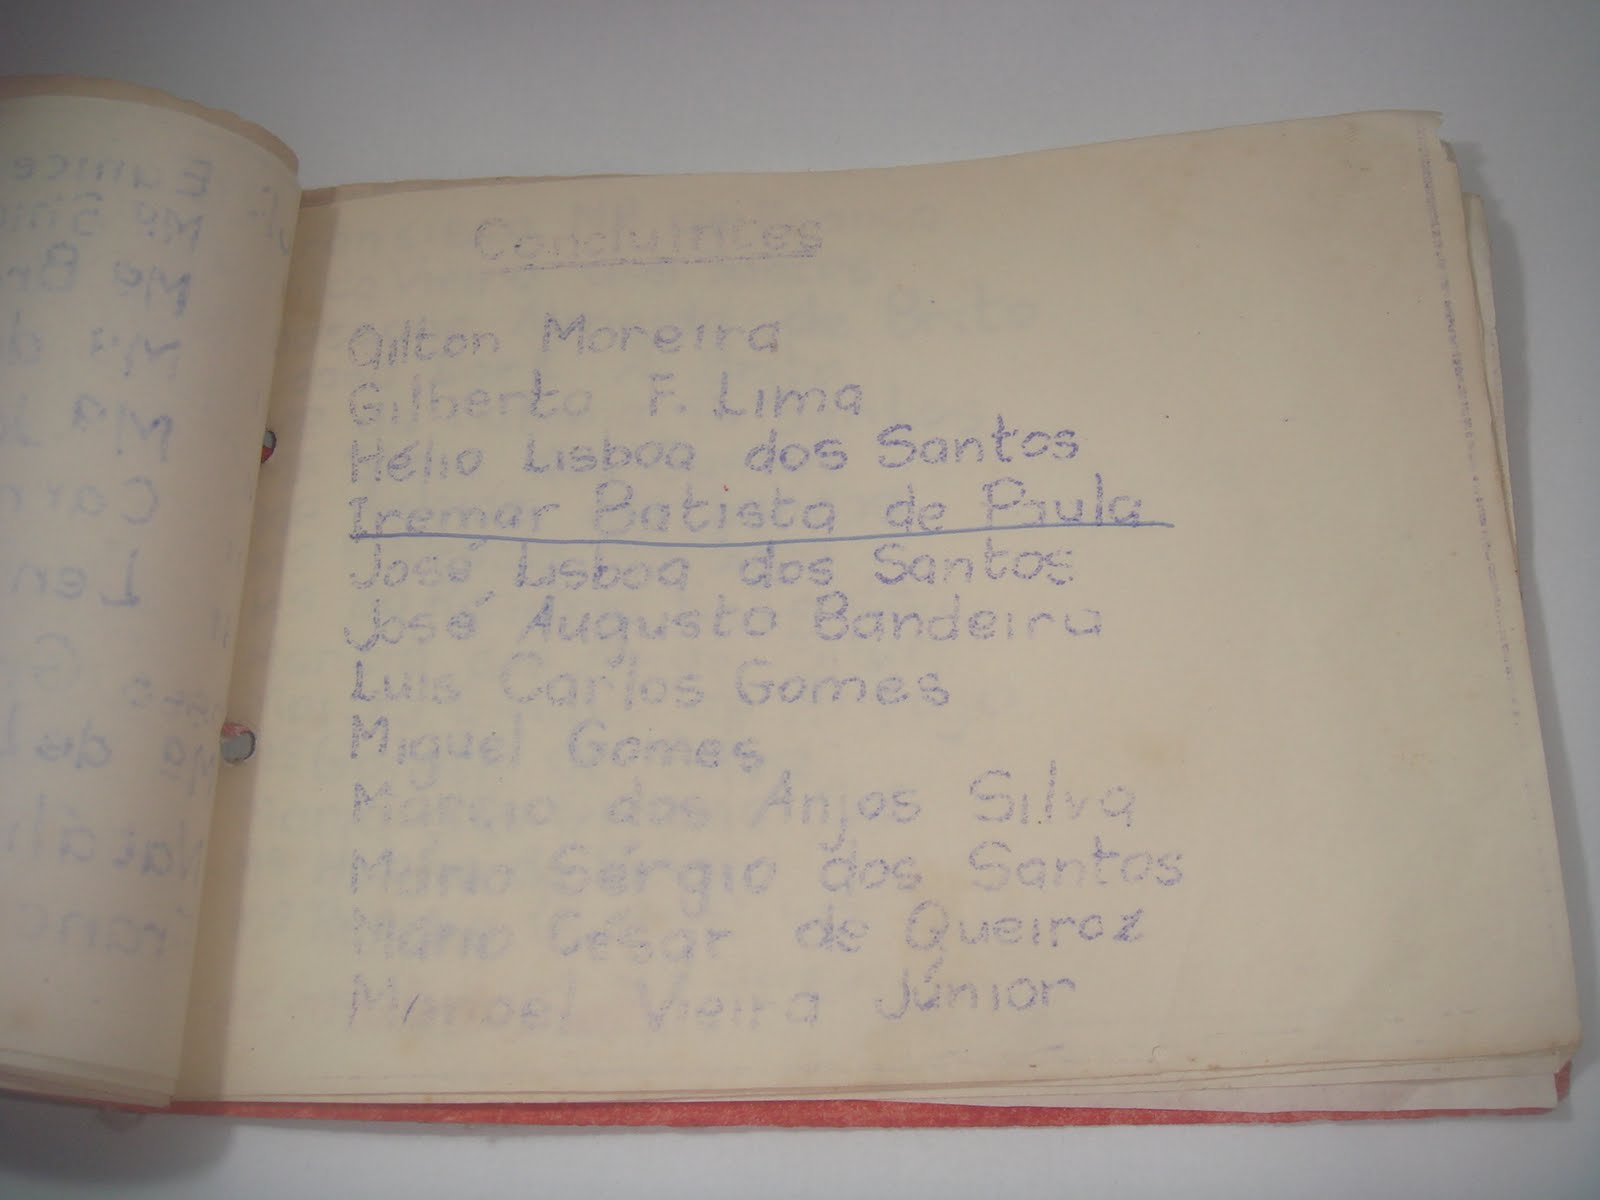 Concluintes
Gilton Moreira
Gilberto F. Lima
Hélio Lisboa dos Santos
Iremar Batista de Paula
José Lisboa dos Santos
José Augusto Bandeira
Luis Carlos Gomes
Miguel Gomes
Márcio dos Anjos Silva
Mário Sérgio dos Santos
Mário César de Queiroz
Manoel Vieira Júnior
Eunice